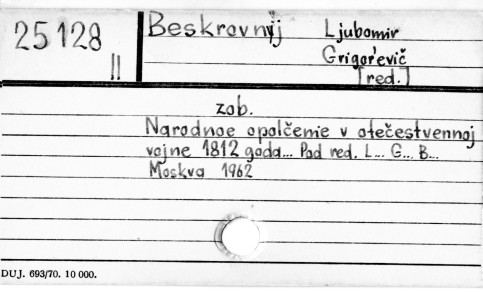 25128
II
Beskrovnyj Ljubomir
Grigor'evič
[red.]
zob.
Narodnoe opolčenie v otečestvennoj
vojne 1812 goda... Pod red. L... G... B...
Moskva 1962
DUJ. 693/70. 10 000.